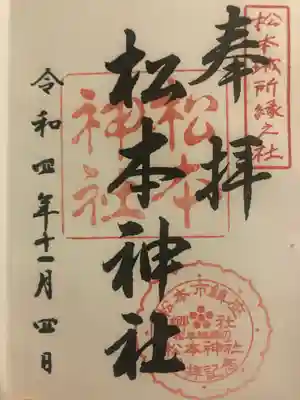 松本城所縁之社
奉拝
松本
神社
松本神社
令和四年十一月四日
松本市鎮座
郷社
松本神社